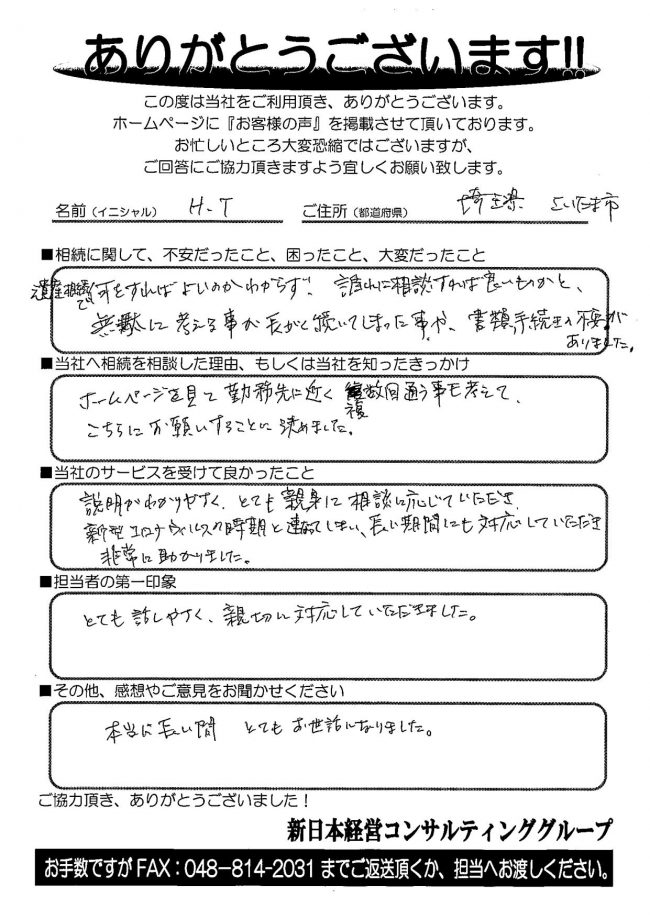 ありがとうございます!!
この度は当社をご利用頂き、ありがとうございます。
ホームページに『お客様の声』を掲載させて頂いております。
お忙しいところ大変恐縮ではございますが、
ご回答にご協力頂きますよう宜しくお願い致します。
名前（イニシャル） H.T ご住所（都道府県） 埼玉県 さいたま市
■相続に関して、不安だったこと、困ったこと、大変だったこと
遺産相続で何をすればよいのかわからず、誰れに相談すれば良いものかと、
無駄に考える事が長がく続いてしまった事や、書類手続きの不安が
ありました。
■当社へ相続を相談した理由、もしくは当社を知ったきっかけ
ホームページを見て勤務先に近く複数回通う事も考えて、
こちらにお願いすることに決めました。
■当社のサービスを受けて良かったこと
説明がわかりやすく、とても親身に相談に応じていただき
新型コロナウイルスの時期と連なってしまい、長い期間にも対応していただき
非常に助かりました。
■担当者の第一印象
とても話しやすく、親切に対応していただきました。
■その他、感想やご意見をお聞かせください
本当に長い間 とてもお世話になりました。
ご協力頂き、ありがとうございました！
新日本経営コンサルティンググループ
お手数ですがFAX：048－814－2031までご返送頂くか、担当へお渡しください。